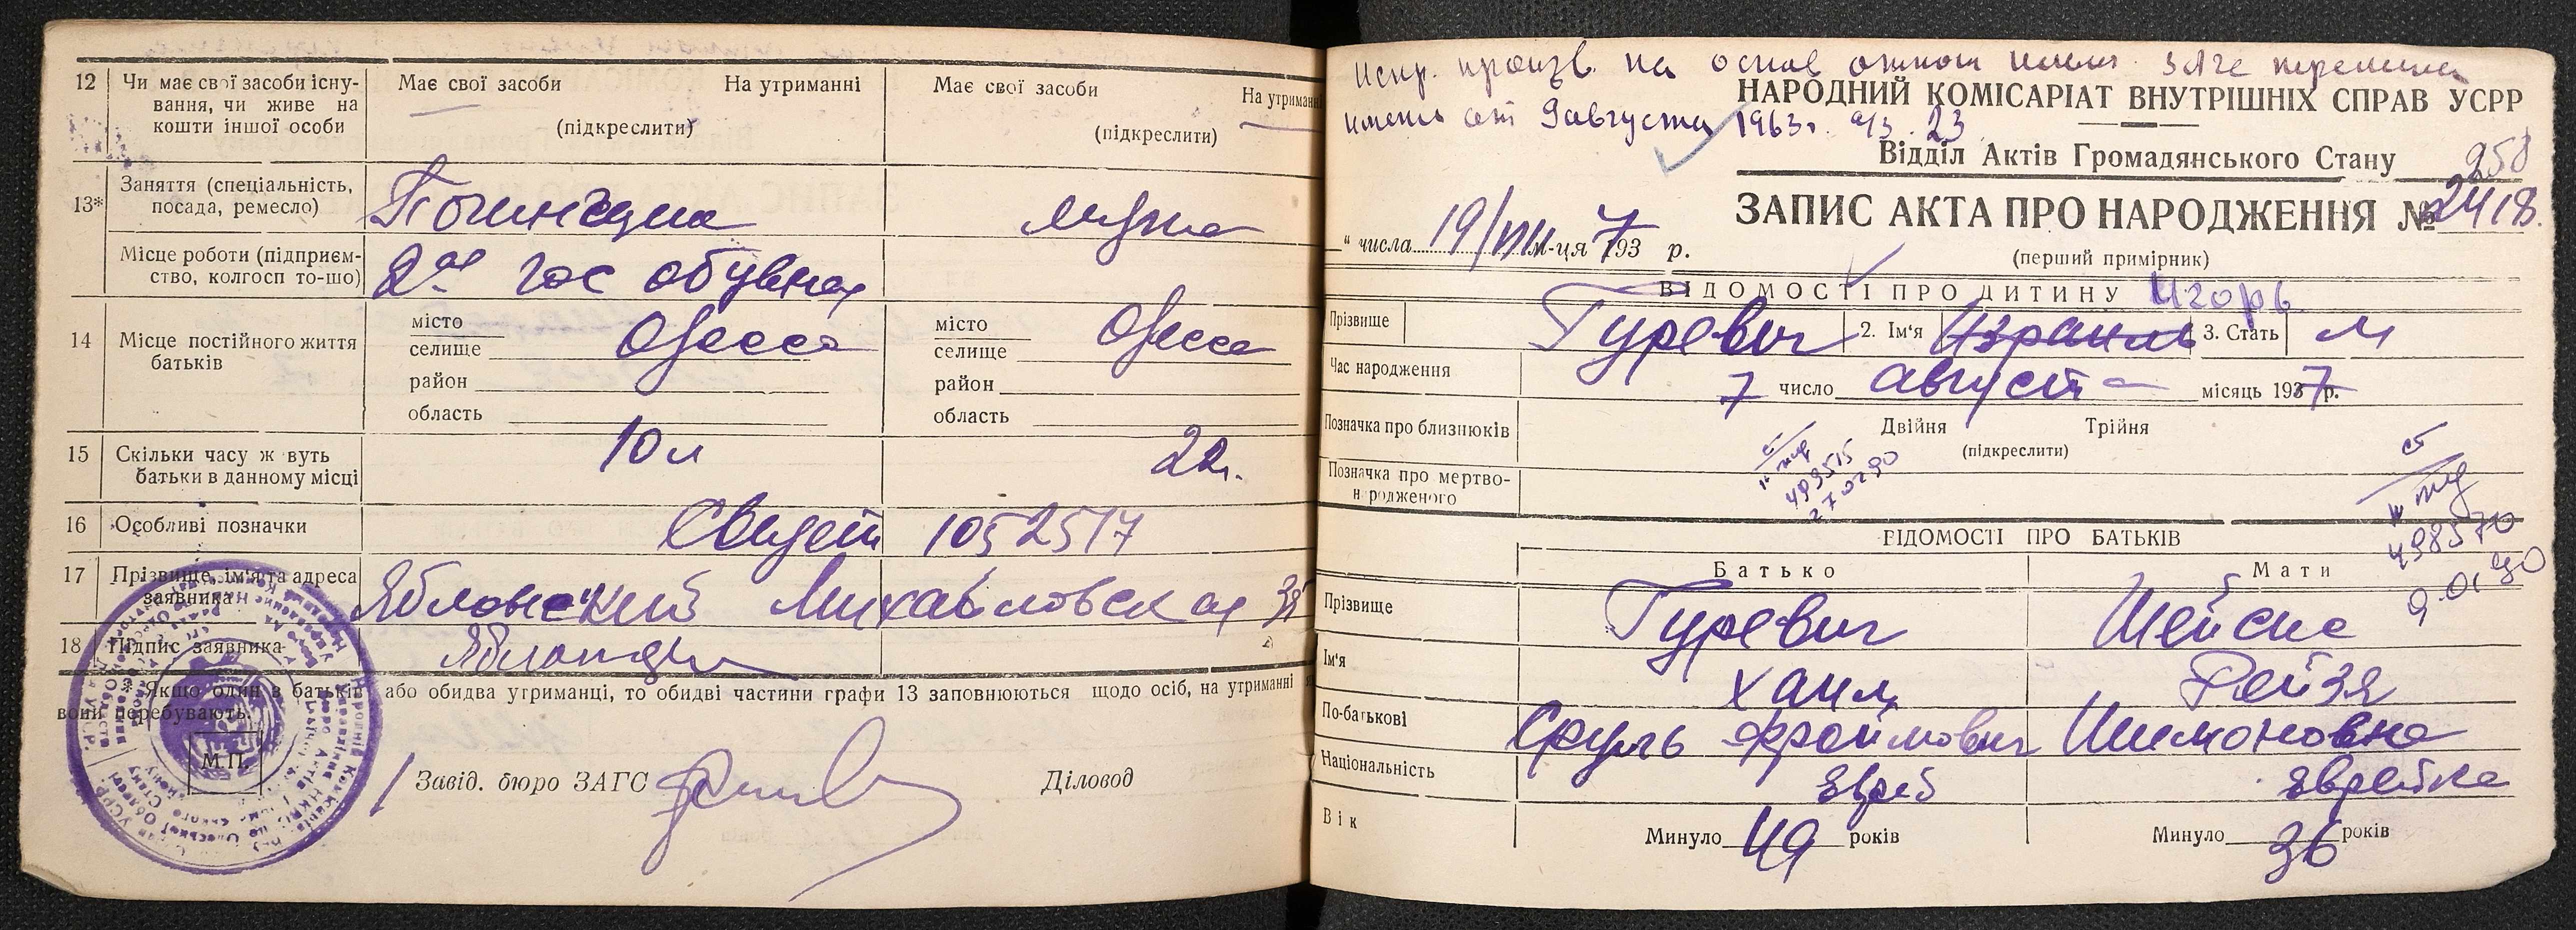 12 Чи має свої засоби існування, чи живе на кошти іншої особи
Має свої засоби На утриманні
(підкреслити)
Має свої засоби На утриманні
(підкреслити)
13* Заняття (спеціальність, посада, ремесло)
мужа
Місце роботи (підприємство, колгосп то-що)
2ая гос обувная
14 Місце постійного життя батьків
місто
селище Одесса
район
область
місто
селище Одесса
район
область
15 Скільки часу ж вуть батьки в данному місці
10 л
16 Особливі позначки
Свидет 1052517
17 Прізвище, ім'я та адреса заявника
Яблонский Михайловская 35
18 Підпис заявника
* Якщо один з батьків або обидва утриманці, то обидві частини графи 13 заповнюються щодо осіб, на утриманні
вони перебувають.
М.П.
Завід. бюро ЗАГС Діловод
Испр. произв. на основ
имени от 9 августа 1963 г. а/з. 23
НАРОДНИЙ КОМІСАРІАТ ВНУТРІШНІХ СПРАВ УСРР
Відділ Актів Громадянського Стану
258
ЗАПИС АКТА ПРО НАРОДЖЕННЯ № 2418
(перший примірник)
" числа 19/VIII м-ця 1937 р.
ВІДОМОСТІ ПРО ДИТИНУ
Игорь
Прізвище Гуревич 2. Ім'я Израиль 3. Стать м
Час народження 7 число август місяць 1937 р.
Позначка про близнюків Двійня Трійня
(підкреслити)
Позначка про мертвонародженого
498570
9.01.90
ВІДОМОСТІ ПРО БАТЬКІВ
Батько Мати
Прізвище Гуревич Шейсне
Ім'я Хаим Рейзя
По-батькові Сруль Фроймович Шимоновна
Національність Еврей Еврейка
Вік Минуло 49 років Минуло 36 років